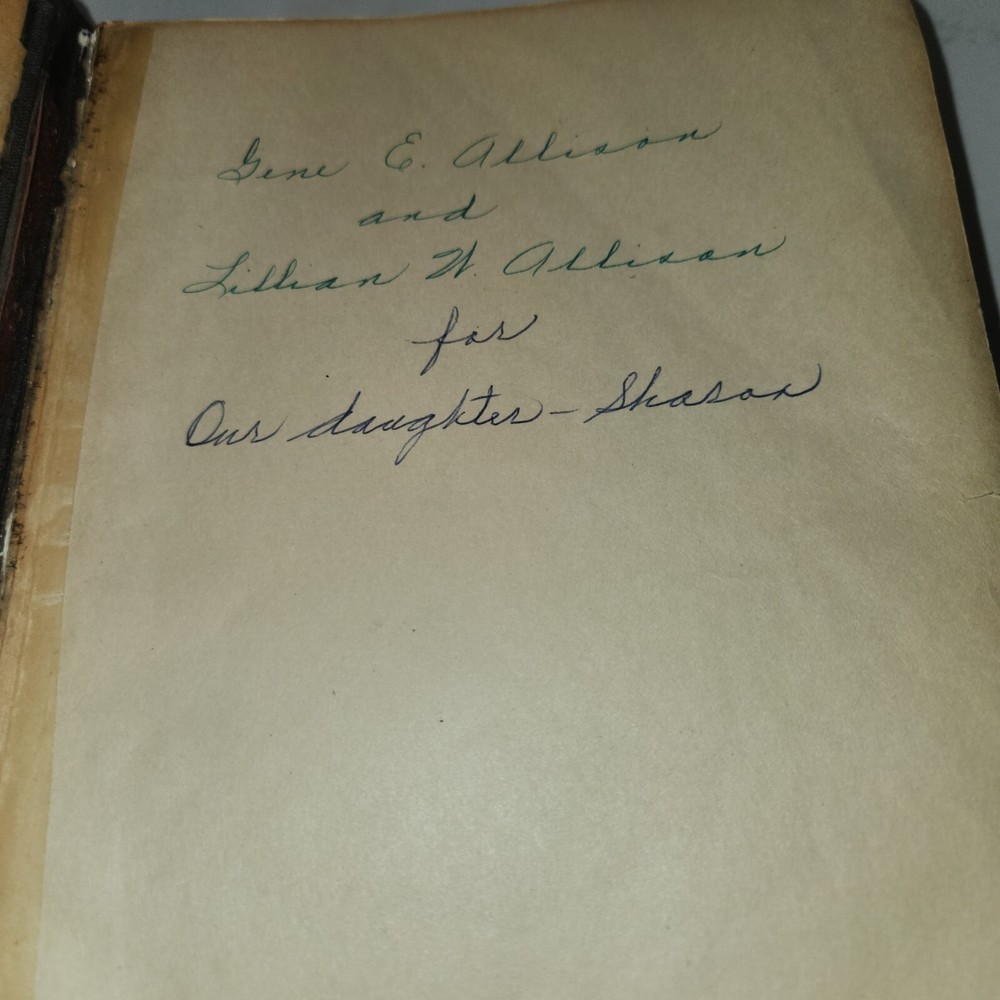 Gene E. Allison
and
Lillian W. Allison
for
Our daughter - Sharon